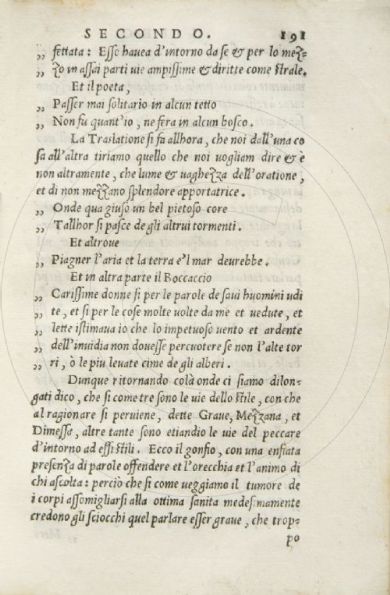 SECONDO. 191
„ fettata: Esse hauea d'intorno da se & per lo mez-
„ zo in assai parti uie ampissime & diritte come strale.
Et il poeta,
„ Passer mai solitario in alcun tetto
„ Non fu quant'io, ne fera in alcun bosco.
La Traslatione si fa allhora, che noi dall'una co
sa all'altra tiriamo quello che noi uogliam dire & è
non altramente, che lume & uaghezza dell'oratione,
et di non mezzano splendore apportatrice.
„ Onde qua giuso un bel pietoso core
„ Tallhor si pasce de gli altrui tormenti.
Et altroue
„ Piagner l'aria et la terra e'l mar deurebbe.
Et in altra parte il Boccaccio
„ Carissime donne si per le parole de saui huomini udi
„ te, et si per le cose molte uolte da me et uedute, et
„ lette istimaua io che lo impetuoso uento et ardente
„ dell'inuidia non douesse percuotere se non l'alte tor
„ ri, ò le piu leuate cime de gli alberi.
Dunque ritornando colà onde ci siamo dilon-
gati dico, che si come tre sono le uie dello stile, con che
al ragionare si peruiene, dette Graue, Mezzana, et
Dimessa, altre tante sono etiandio le uie del peccare
d'intorno ad essi stili. Ecco il gonfio, con una enfiata
presenza di parole offendere et l'orecchia et l'animo di
chi ascolta: perciò che si come ueggiamo il tumore de
i corpi assomigliarsi alla ottima sanita medesmamente
credono gli sciocchi quel parlare esser graue, che trop-
po